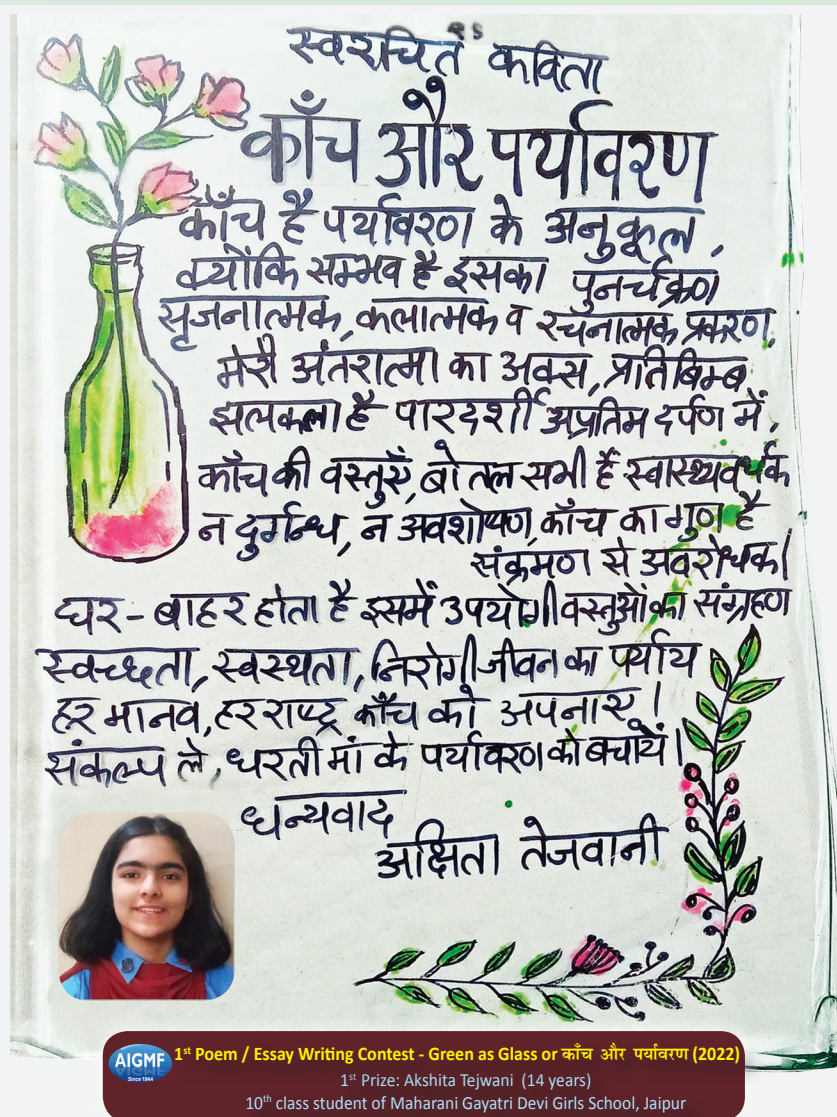 स्वरचित कविता
काँच और पर्यावरण
काँच है पर्यावरण के अनुकूल,
क्योंकि सम्भव है इसका पुनर्चक्रण
सृजनात्मक, कलात्मक व रचनात्मक प्रकरण,
मेरी अंतरात्मा का अक्स, प्रतिबिम्ब
झलकला है पारदर्शी अप्रतिम दर्पण में,
काँच की वस्तुएँ, बोतल सभी हैं स्वास्थ्यवर्धक
न दुर्गन्ध, न अवशोषण, काँच का गुण है
संक्रमण से अवरोधक।
घर-बाहर होता है इसमें उपयोगी वस्तुओं का संग्रहण
स्वच्छता, स्वस्थता, निरोगी जीवन का पर्याय
हर मानव, हर राष्ट्र काँच को अपनाए।
संकल्प ले, धरती मां के पर्यावरण को बचायें।
धन्यवाद
अक्षिता तेजवानी
AIGMF
Since 1944
1st Poem / Essay Writing Contest - Green as Glass or काँच और पर्यावरण (2022)
1st Prize: Akshita Tejwani (14 years)
10th class student of Maharani Gayatri Devi Girls School, Jaipur